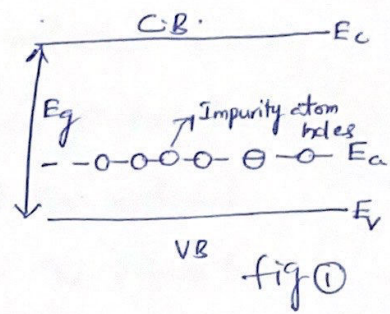 C.B.
Ec
Eg
Impurity atom
holes
Ea
Ev
VB
fig ①